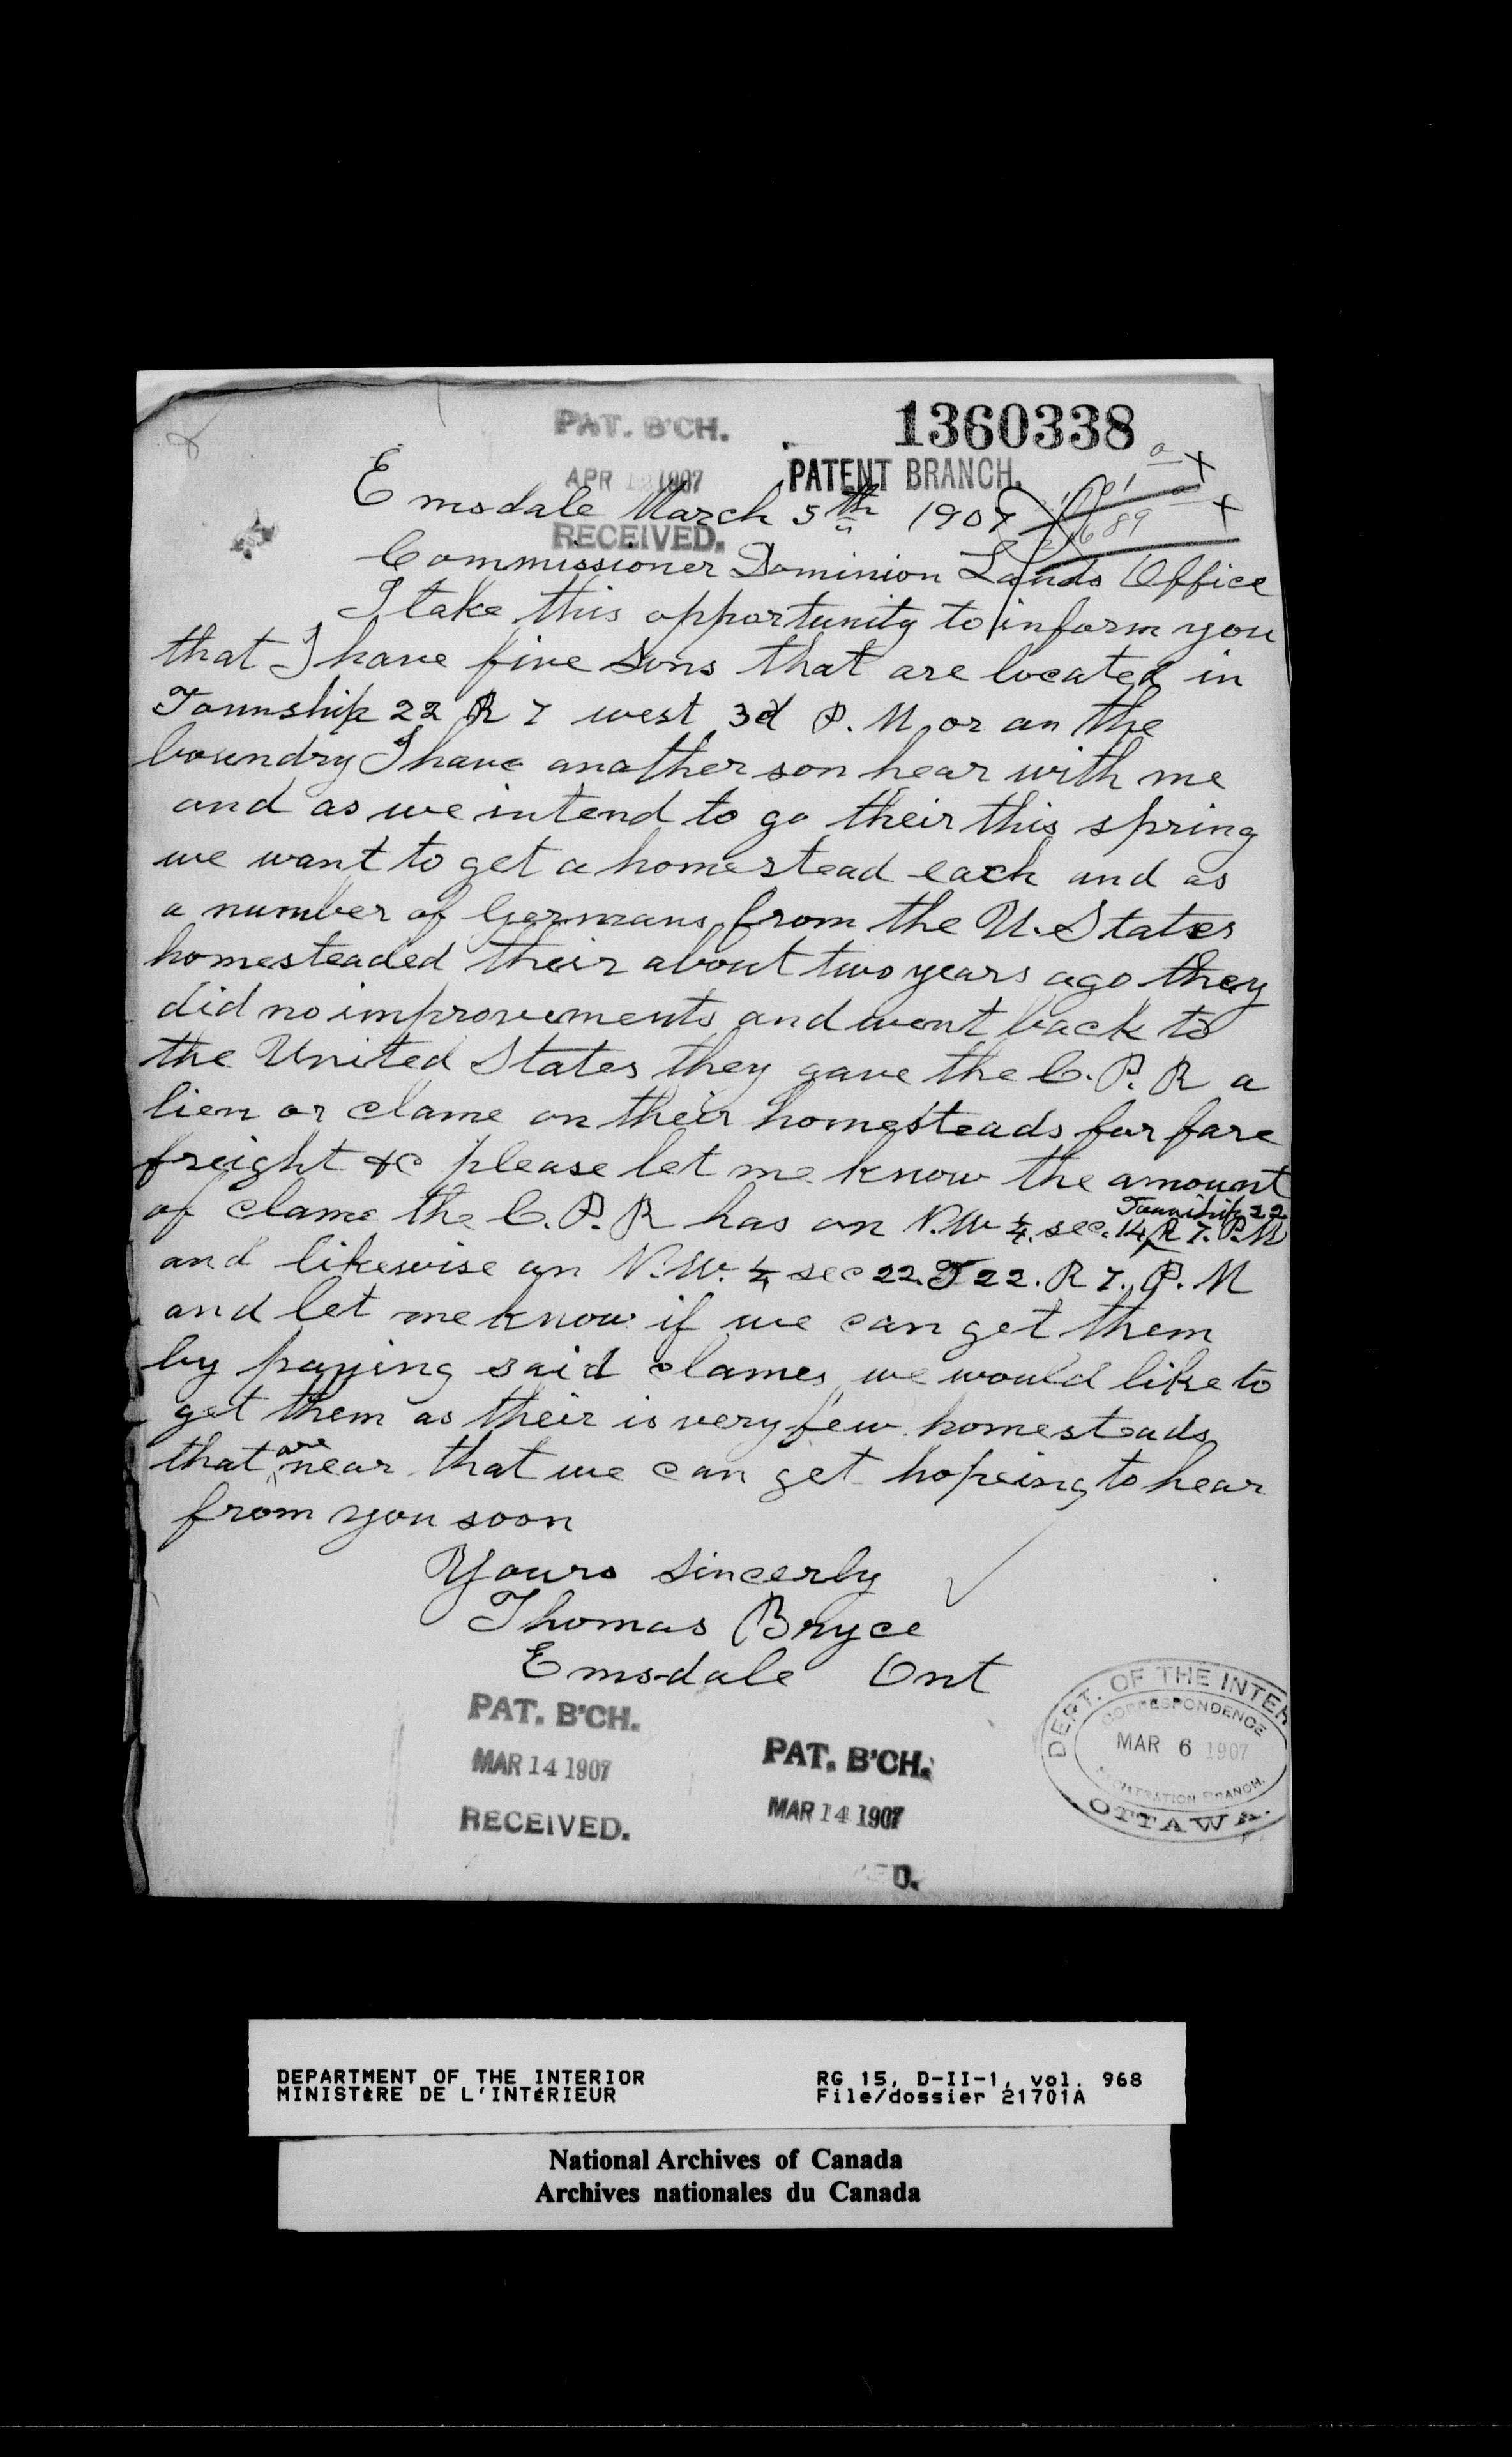 1360338
PAT. B'CH.
PATENT BRANCH.
APR 12 1907
Emsdale March 5th 1907
RECEIVED.
Commissioner Dominion Lands Office
I take this opportunity to inform you
that I have five sons that are located in
Township 22 R 7 west 3d P. M. or on the
boundry I have another son hear with me
and as we intend to go their this spring
we want to get a homestead each and as
a number of Germans from the U. States
homesteaded their about two years ago they
did no improvements and went back to
the United States they gave the C. P. R a
lien or clame on their homesteads for fare
freight &c please let me know the amount
of clame the C. P. R has on N.W 1/4. sec. 14 Township 22 R 7. P.M
and likewise on N.W. 1/4 sec 22. T 22. R 7. P. M
and let me know if we can get them
by paying said clames we would like to
get them as their is very few homesteads
that are near that we can get hopeing to hear
from you soon
Yours sincerly
Thomas Bryce
Emsdale Ont
PAT. B'CH.
MAR 14 1907
RECEIVED.
PAT. B'CH.
MAR 14 1907
D.
DEPT. OF THE INTER
CORRESPONDENCE
MAR 6 1907
REGISTRATION BRANCH.
OTTAWA.
DEPARTMENT OF THE INTERIOR
MINISTÈRE DE L'INTÉRIEUR
RG 15, D-II-1, vol. 968
File/dossier 21701A
National Archives of Canada
Archives nationales du Canada